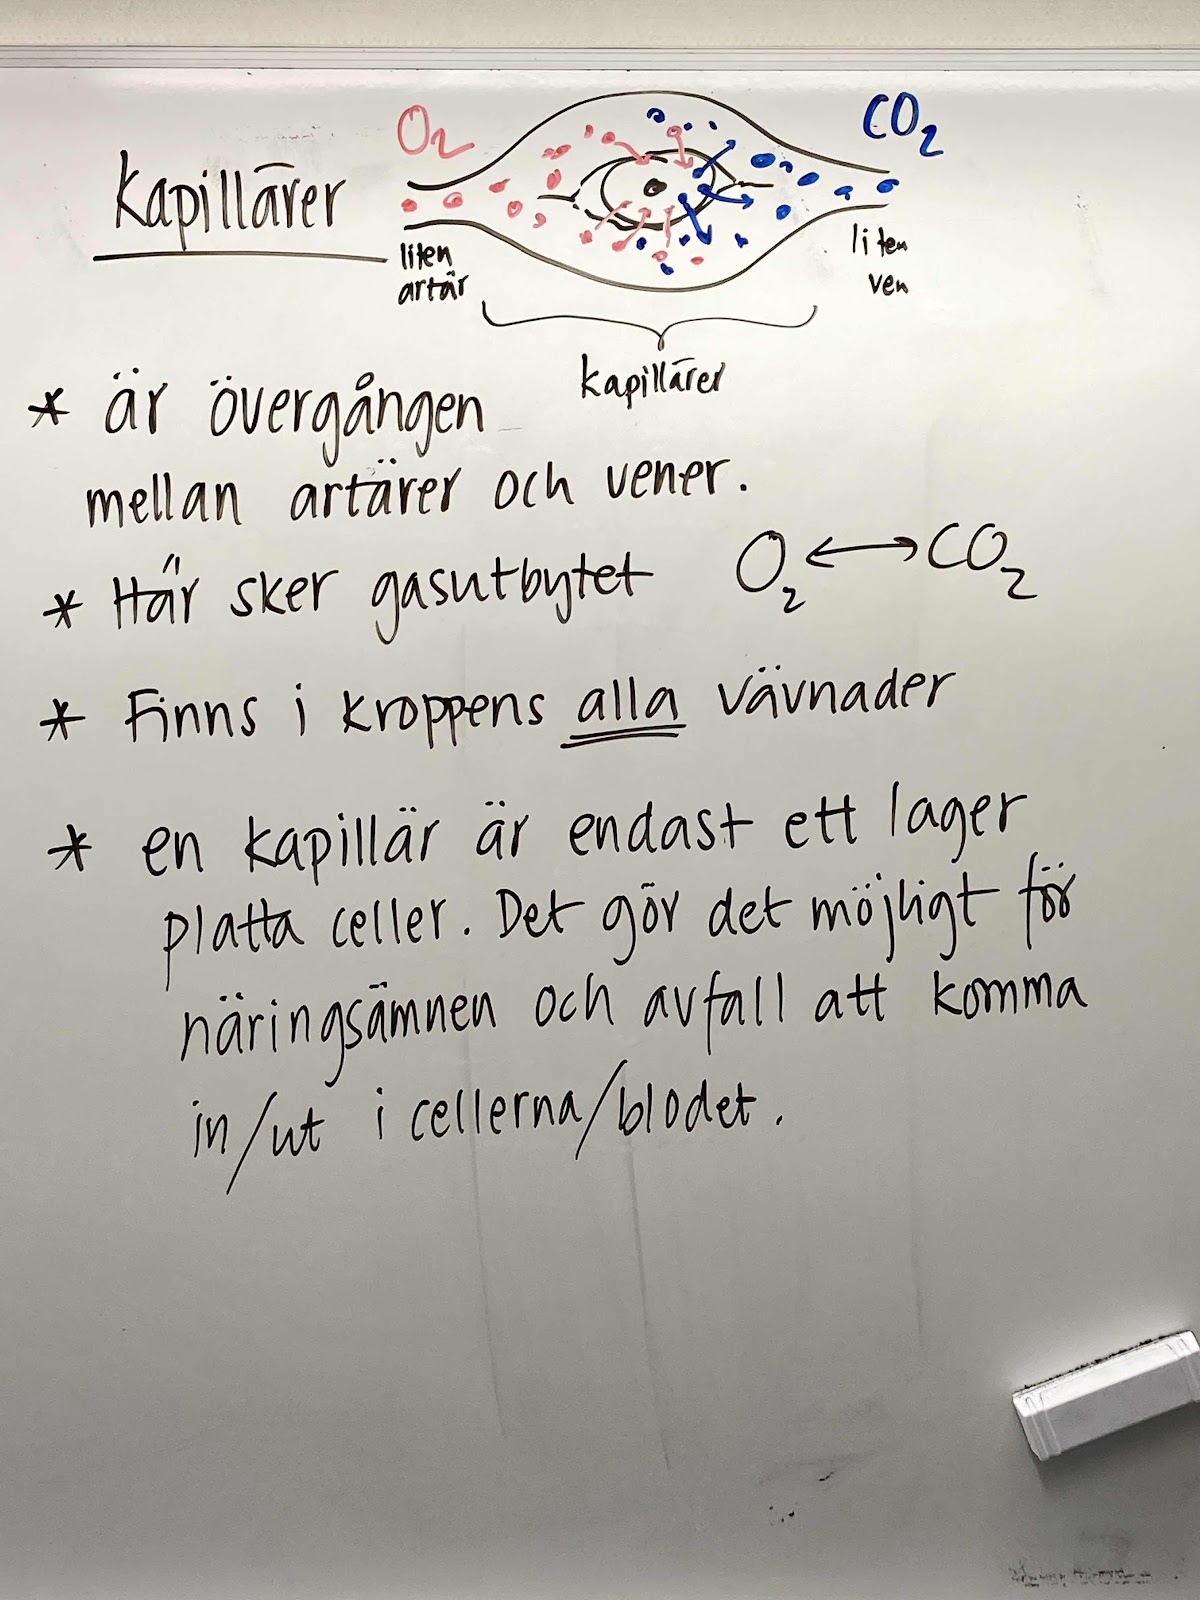 Kapillärer
O₂
CO₂
liten
artär
liten
ven
kapillärer
* är övergången
mellan artärer och vener.
* Här sker gasutbytet O₂ ↔ CO₂
* Finns i kroppens alla vävnader
* en kapillär är endast ett lager
platta celler. Det gör det möjligt för
näringsämnen och avfall att komma
in/ut i cellerna/blodet.